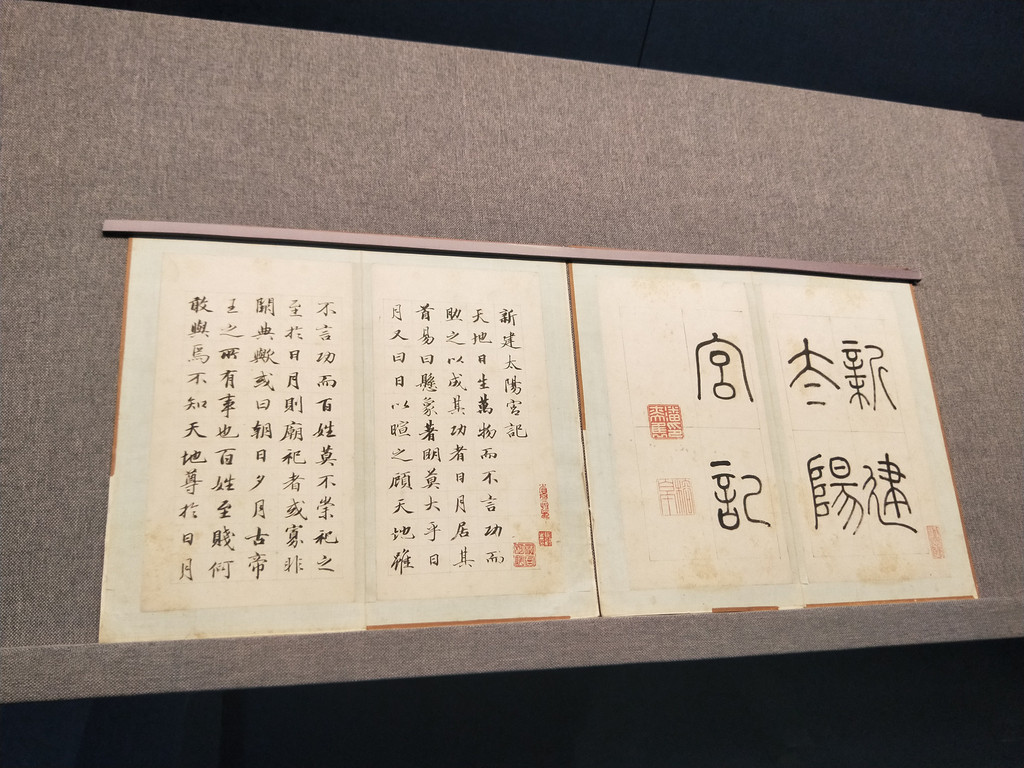 新建
太陽
宮記
新建太陽宮記
天地日生萬物而不言功而
助之以成其功者日月居其
首易曰懸象著明莫大乎日
月又曰日以暄之顧天地雖
不言功而百姓莫不崇祀之
至於日月則廟祀者或寡非
闕典歟或曰朝日夕月古帝
王之所有事也百姓至賤何
敢與焉不知天地尊於日月